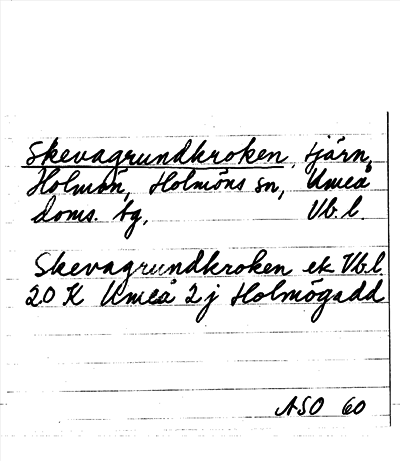 Skevagrundkroken, tjärn,
Holmön, Holmöns sn, Umeå
doms. tg, Vb. l.
Skevagrundkroken ek Vb. l.
20 K Umeå 2j Holmögadd
ASO 60